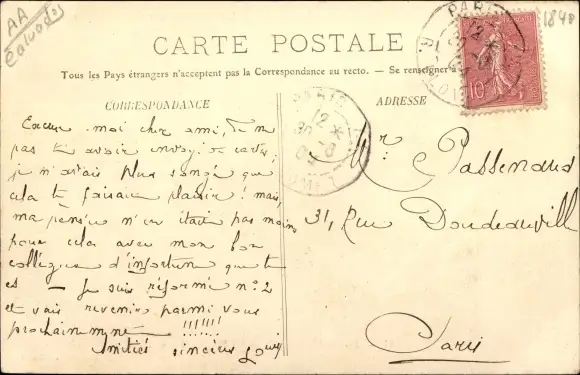 AA
Calvados
1840
CARTE POSTALE
Tous les Pays étrangers n'acceptent pas la Correspondance au recto. — Se renseigner à
CORRESPONDANCE
ADRESSE
PARIS
10
PARIS
12
Excuse-moi cher ami, de ne
pas t'avoir envoyé de cartes,
je n'avais plus songé que
cela te faisait plaisir ! mais,
ma pensée n'en était pas moins
pour cela avec mon bon
collègue d'infortune que tu
es — Je suis réformé n° 2
et vais revenir parmi vous
prochainement !!!!!!!
Amitiés sincères Louis
Mr. Passenaud
31, Rue Doudeauville
Paris